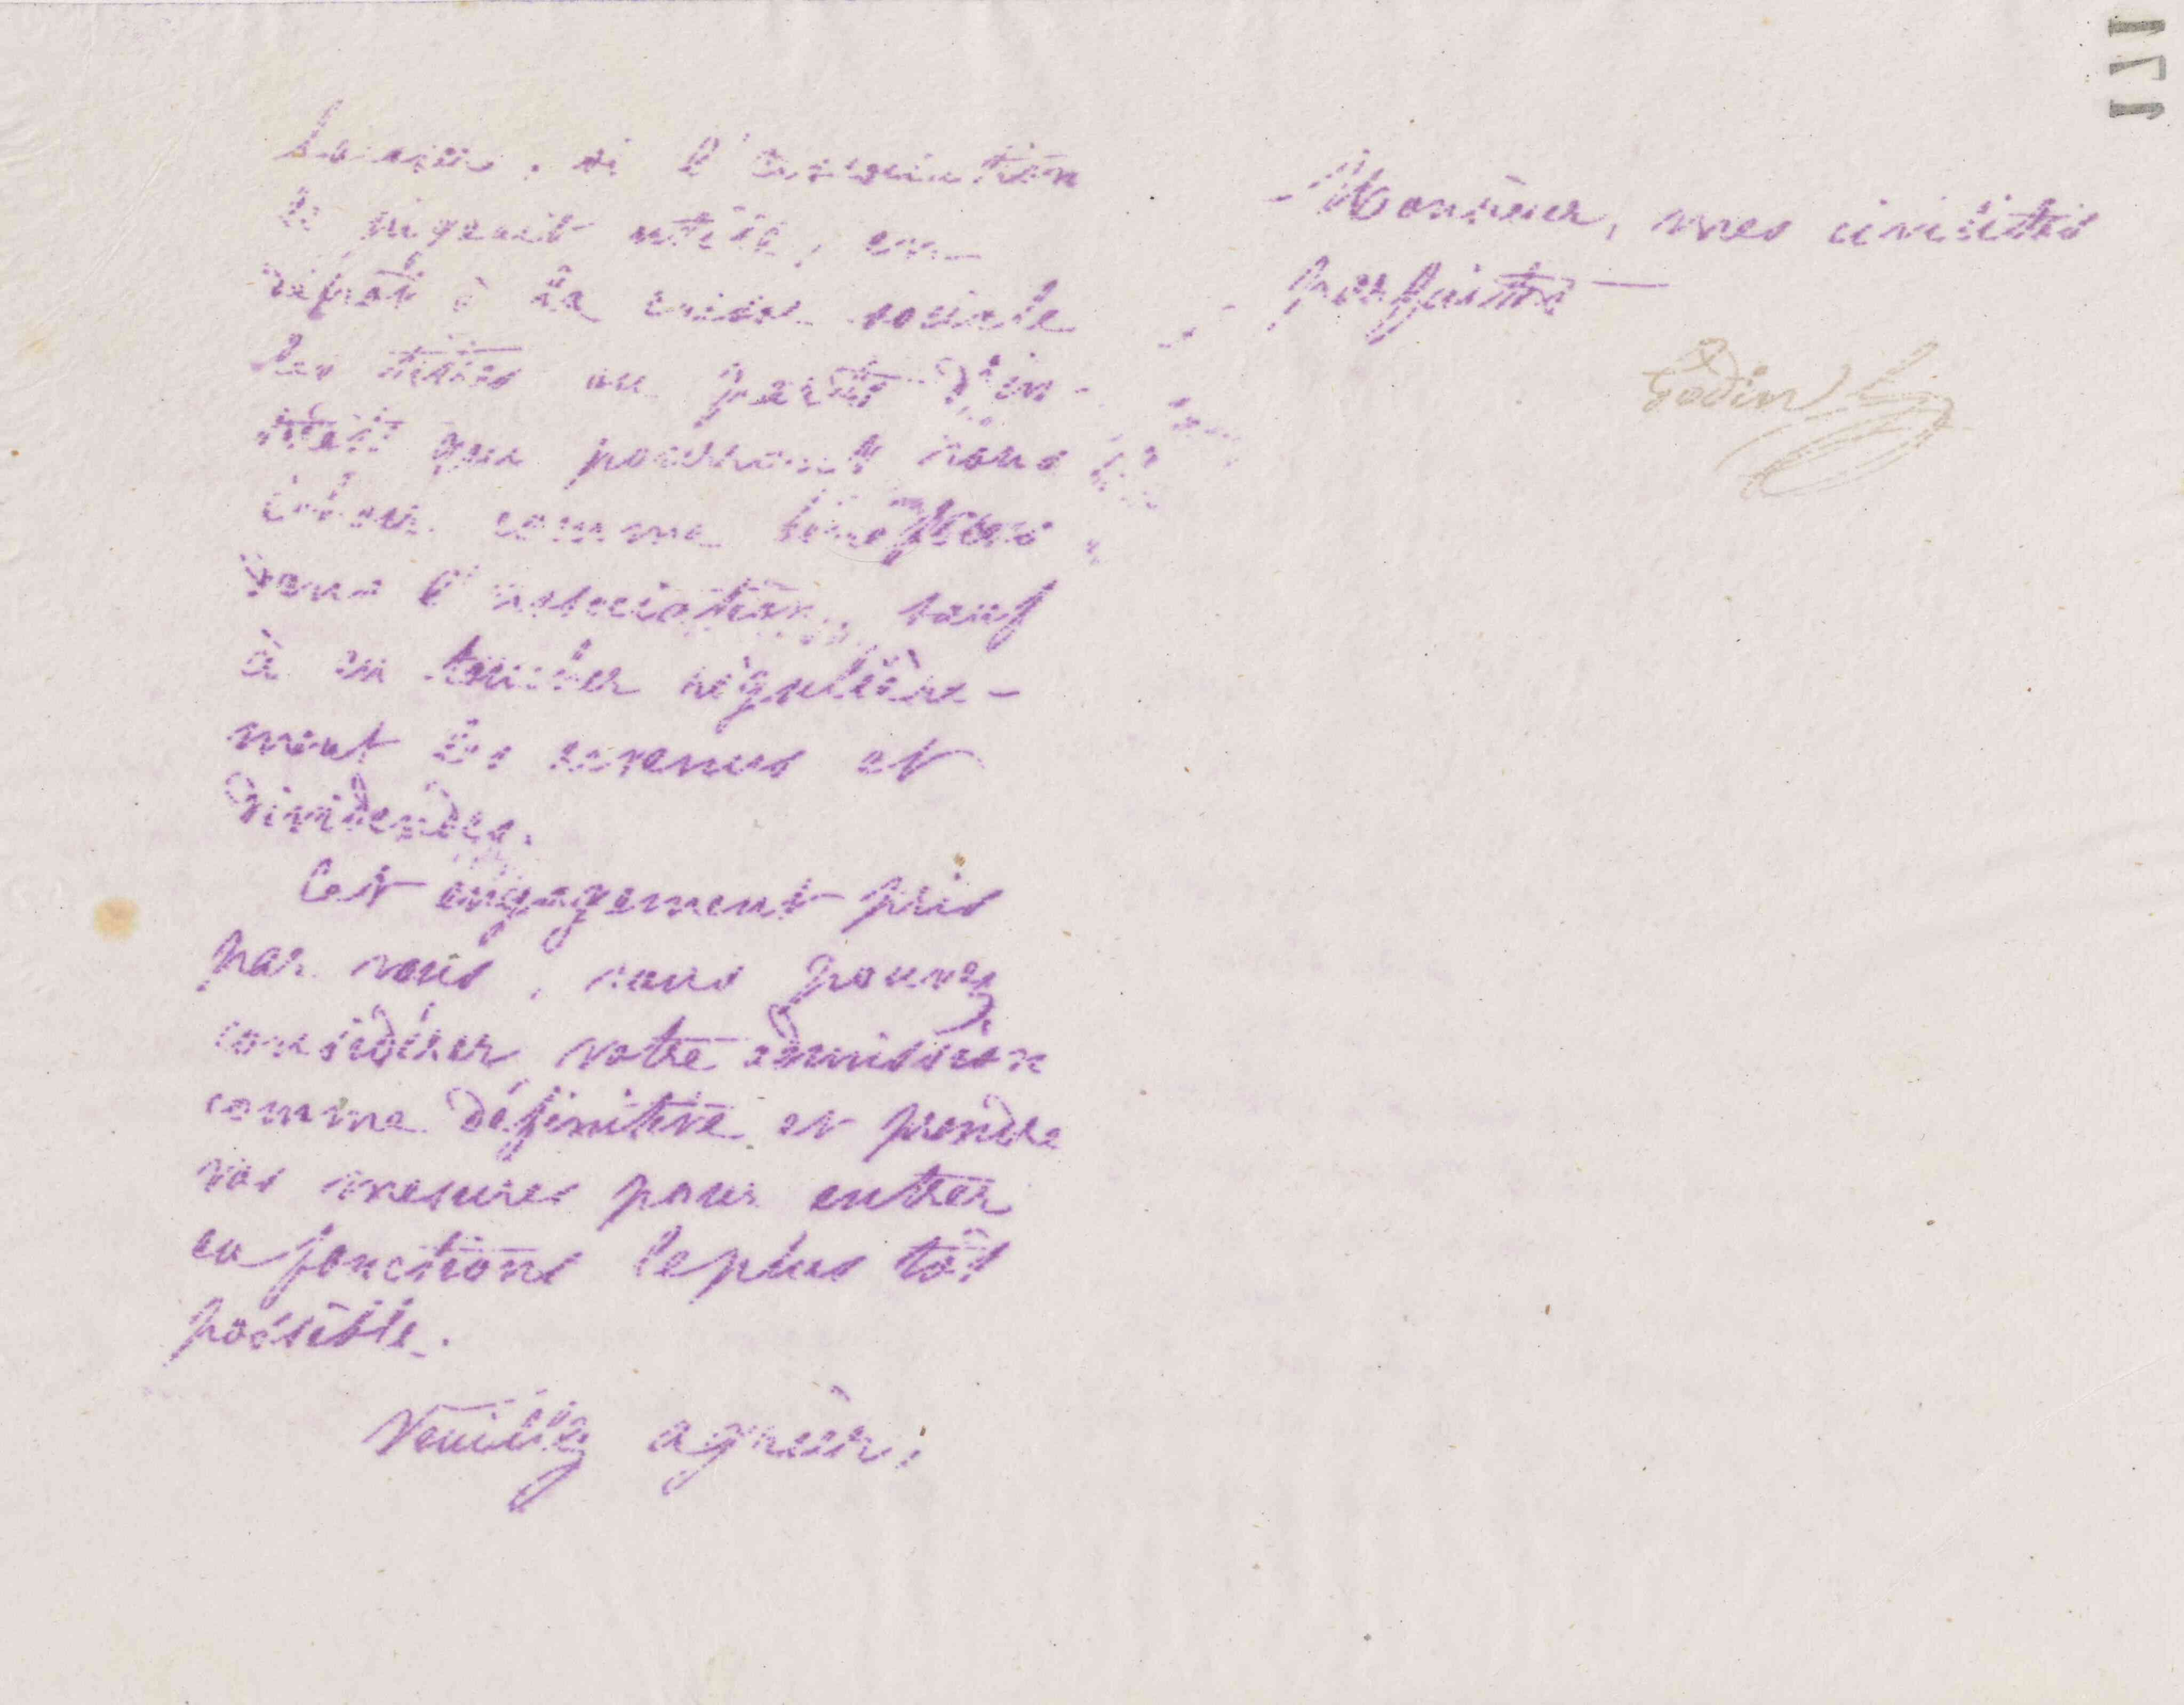 laisser, si l'association
le jugeait utile, en
dépôt à la caisse sociale
les titres ou parts d'in-
térêt que pourront vous
échoir comme bénéfices
dans l'association, sauf
à en toucher régulière-
ment les revenus et
dividendes.
Cet engagement pris
par vous, vous pouvez
considérer votre admission
comme définitive et prendre
vos mesures pour entrer
en fonctions le plus tôt
possible.
Veuillez agréer,
Monsieur, mes civilités
parfaites
Godin
171